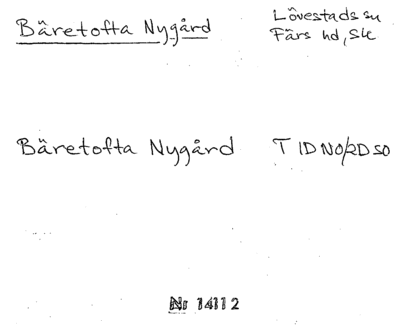 Bäretofta Nygård
Lövestads su
Färs hd, Sk
Bäretofta Nygård T ID NO/RD SO
Nr 14112